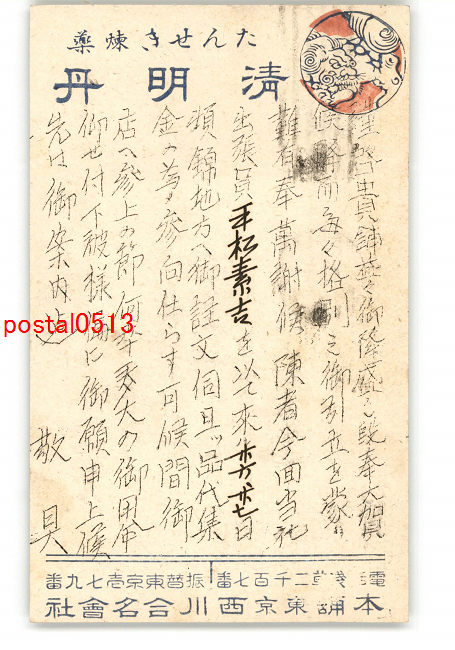 たんせき煉薬
清明丹
謹啓貴舗益々御隆盛之段奉大賀
候降而毎々格別之御引立を蒙り
難有奉萬謝候陳者今回当社
出張員手松素吉を以て来ル廿六廿七日
頃錦地方へ御註文伺旦ッ品代集
金の為メ参向仕らす可候間御
店へ参上の節何卒多大の御用命
仰せ付下被様偏に御願申上候
先は御案内迄
敬具
電 浅草二千百七番
振替東京壱七九番
本舗 東京西川合名會社
postal0513